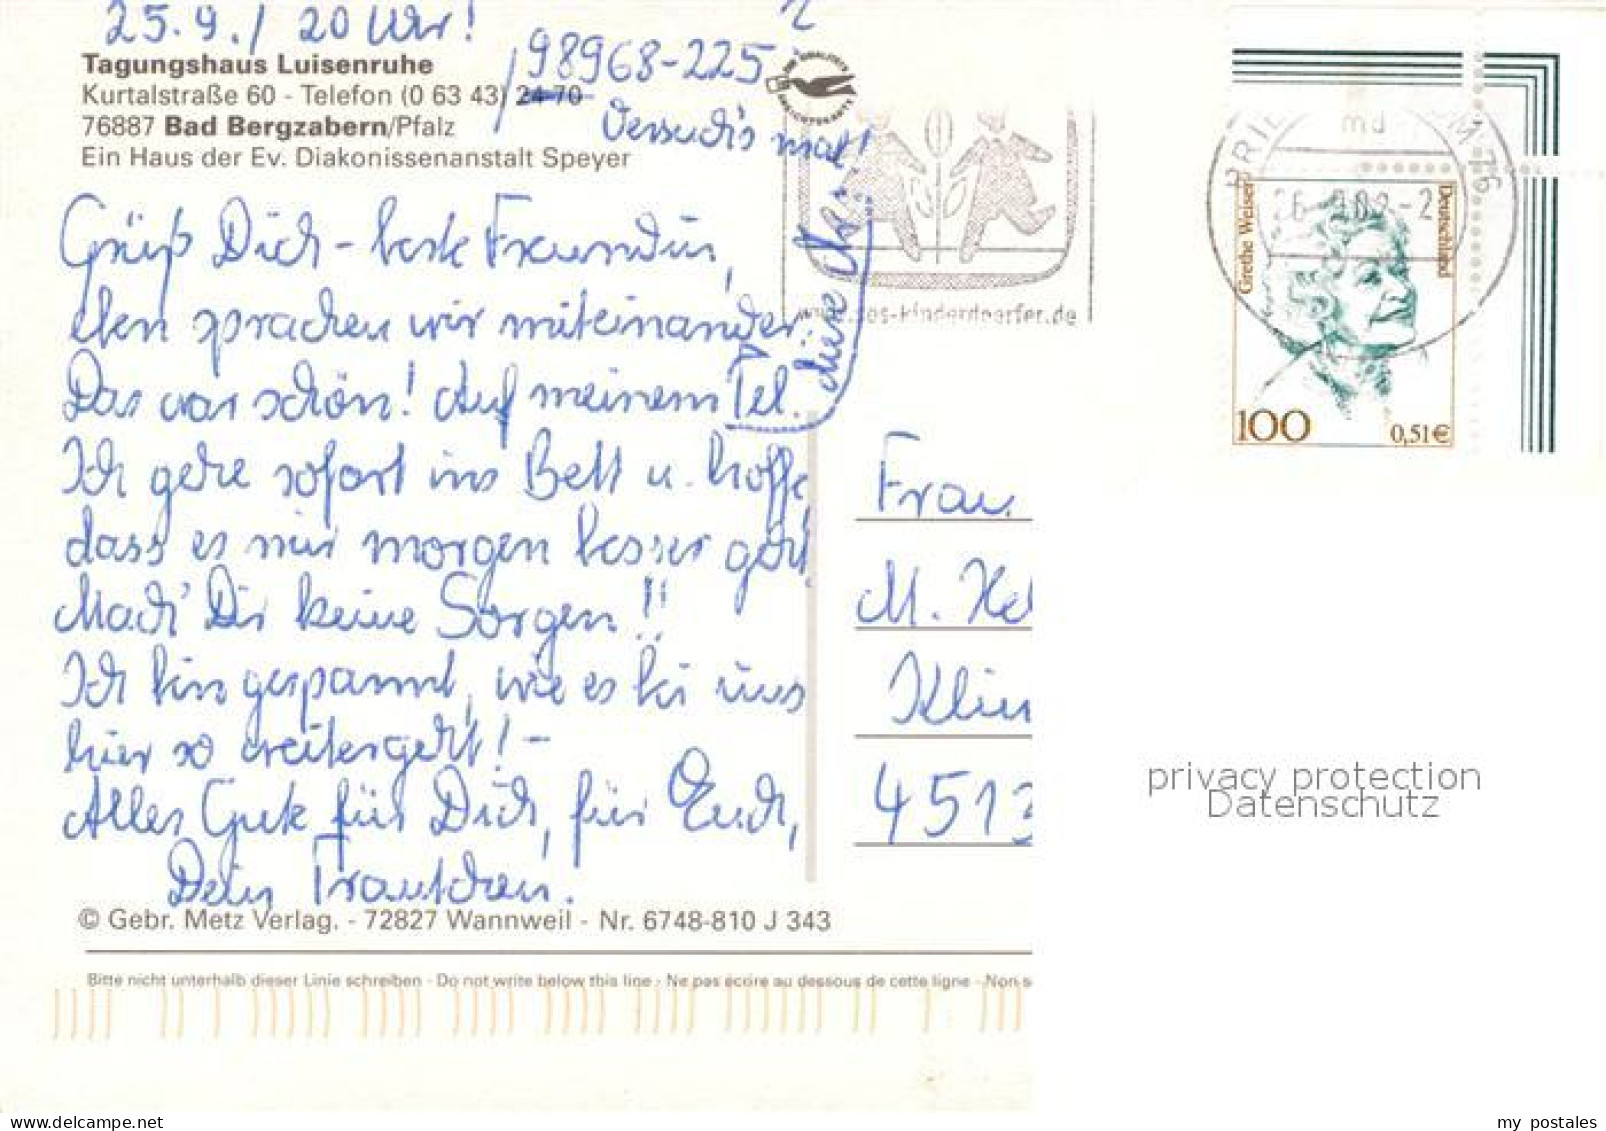 25.9./ 20 Uhr!
Tagungshaus Luisenruhe
Kurtalstraße 60 - Telefon (0 63 43) 24 70
/98968-225
76887 Bad Bergzabern/Pfalz
Versuch's mal!
Ein Haus der Ev. Diakonissenanstalt Speyer
Grüß Dich - beste Freundin,
eben sprachen wir miteinander.
Das war schön! Auf meinem Tel.
diese Nr.
Ich gehe sofort ins Bett u. hoffe
dass es mir morgen besser geht.
Mach' Dir keine Sorgen!!
Ich bin gespannt, wie es bei uns
hier so weitergeht! -
Alles Gute für Dich, für Euch,
Dein Trautchen.
© Gebr. Metz Verlag. - 72827 Wannweil - Nr. 6748-810 J 343
Bitte nicht unterhalb dieser Linie schreiben - Do not write below this line - Ne pas écrire au dessous de cette ligne - Non s
www.sos-kinderdoerfer.de
Grethe Weiser
Deutschland
100
0,51€
Frau
M. He
Klin
4513
privacy protection
Datenschutz
my postales